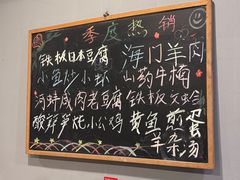 季度热销
铁板日本豆腐
小鱼炒小虾
河蚌咸肉老豆腐
酸辣笋炖小公鸡
海门羊肉
山药牛腩
铁板文蛤
黄鱼
羊杂汤